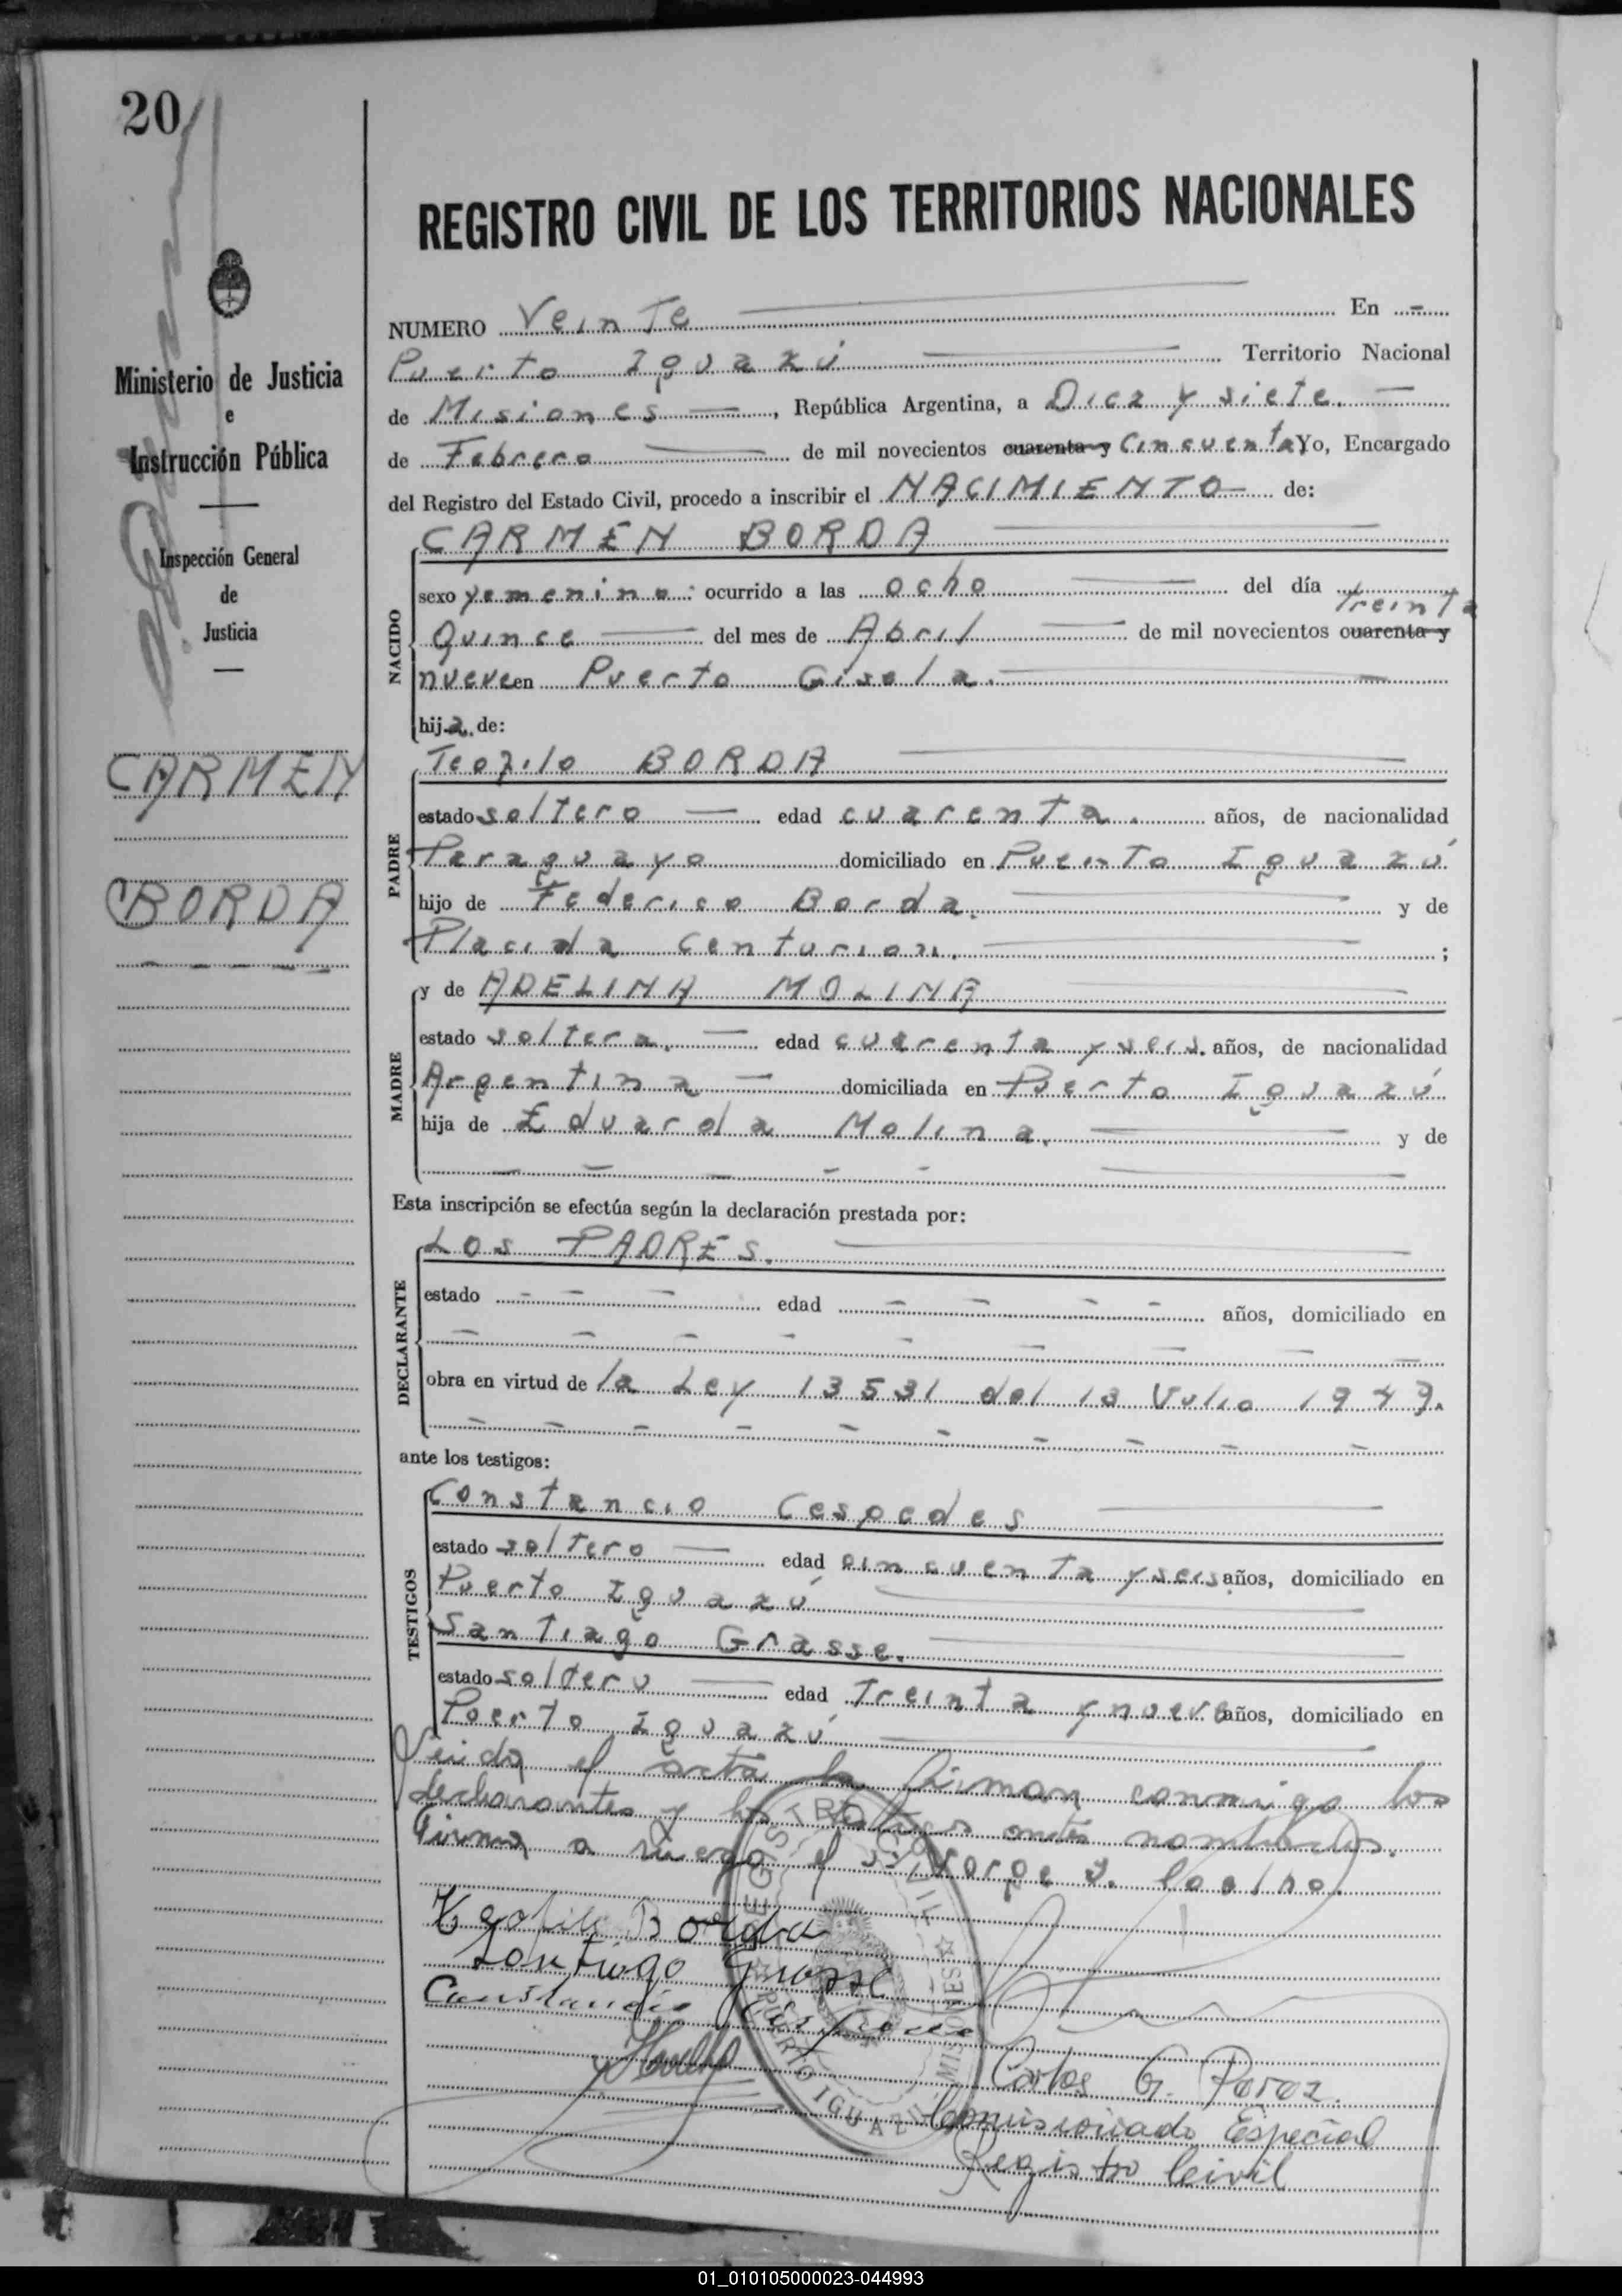 20
REGISTRO CIVIL DE LOS TERRITORIOS NACIONALES
Ministerio de Justicia
e
Instrucción Pública
Inspección General
de
Justicia
CARMEN
BORDA
NUMERO Veinte En
Puerto Iguazú Territorio Nacional
de Misiones, República Argentina, a Diez y siete.
de Febrero de mil novecientos cuarenta y cincuenta Yo, Encargado
del Registro del Estado Civil, procedo a inscribir el NACIMIENTO de:
CARMEN BORDA
NACIDO
sexo femenino: ocurrido a las ocho del día
treinta
Quince del mes de Abril de mil novecientos cuarenta y
nueve en Puerto Gisela.
hija de:
Teofilo BORDA
PADRE
estado soltero edad cuarenta. años, de nacionalidad
Paraguayo domiciliado en Puerto Iguazú
hijo de Federico Borda. y de
Placida Centurion. ;
MADRE
y de ADELINA MOLINA
estado soltera. edad cuarenta y seis. años, de nacionalidad
Argentina domiciliada en Puerto Iguazú
hija de Eduarda Molina. y de
Esta inscripción se efectúa según la declaración prestada por:
LOS PADRES.
DECLARANTE
estado edad años, domiciliado en
obra en virtud de la Ley 13531 del 13 Julio 1949.
ante los testigos:
Constancio Cespedes
TESTIGOS
estado soltero edad cincuenta y seis años, domiciliado en
Puerto Iguazú
Santiago Grasse.
estado soltero edad Treinta y nueve años, domiciliado en
Puerto Iguazú
Leida el acta la firman conmigo los
declarantes y los testigos antes nombrados.
Firma a ruego el Sr. Jorge J. Coelho.
Teofilo Borda
Santiago Grasse
Constancio Cespedes
REGISTRO CIVIL
PUERTO IGUAZU MISIONES
Carlos G. Perez.
Comisionado Especial
Registro Civil
01_010105000023-044993